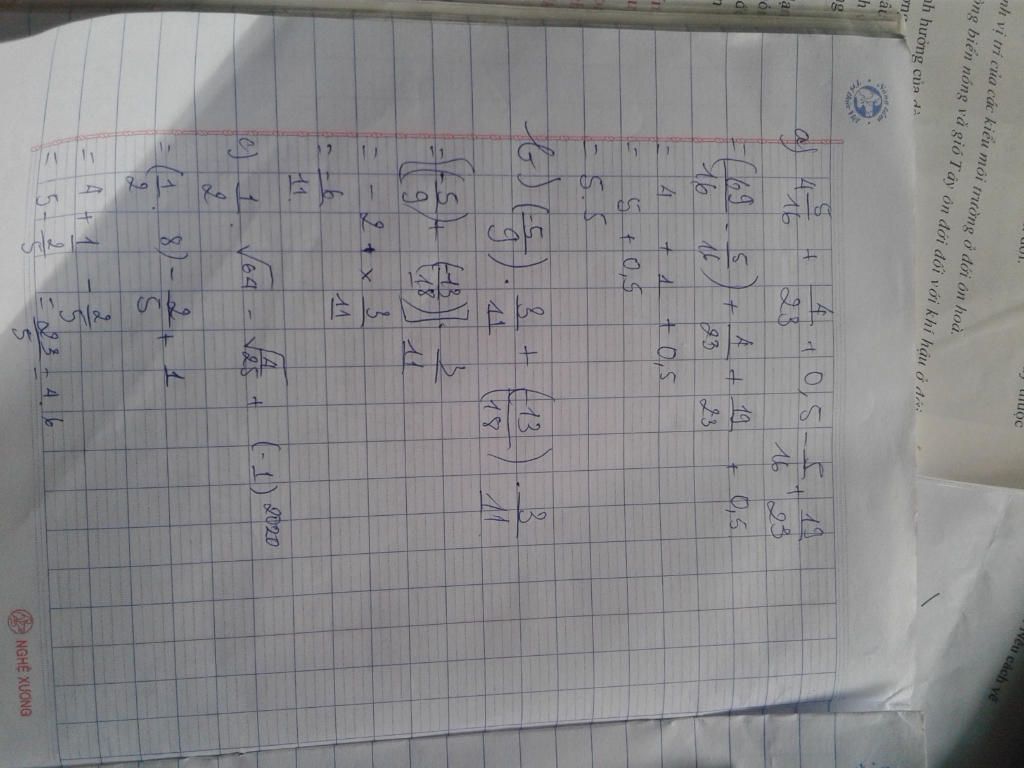 a) 4 5/16 + 4/23 + 0,5 - 5/16 + 19/23
= (69/16 - 5/16) + 4/23 + 19/23 + 0,5
= 4 + 1 + 0,5
= 5 + 0,5
= 5.5
b) (-5/9) . 3/11 + (-13/18) . 3/11
= [(-5/9) + (-13/18)] . 3/11
= - 2 x 3/11
= -6/11
c) 1/2 . √64 - √4/25 + (-1)2020
= (1/2 . 8) - 2/5 + 1
= 4 + 1 - 2/5
= 5 - 2/5 = 23/5 = 4.6
NGHÊ XƯƠNG
ịnh vị trí của các kiểu môi trường ở đới ôn hoà.
òng biển nóng và gió Tây ôn đới đối với khí hậu ở
nh hưởng của
Nêu cách vẽ